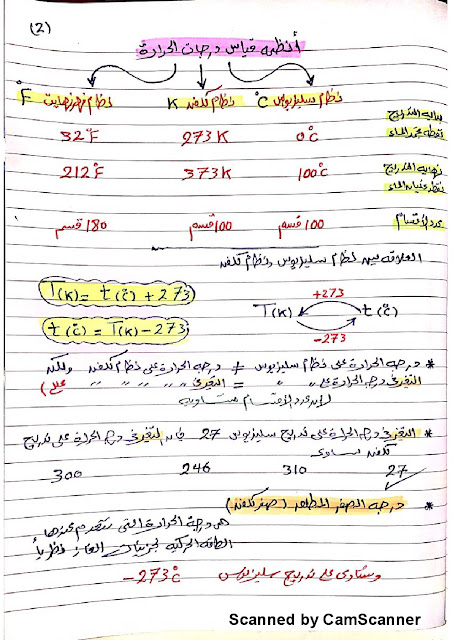 (2)
أنظمه قياس درجات الحرارة
نظام سليزيوس °C نظام كلفن K نظام فهرنهايت °F
بداية التدريج
نقطة تجمد الماء
0°C 273 K 32°F
نهاية التدريج
نقطة غليان الماء
100°C 373 K 212°F
عدد الأقسام
100 قسم 100 قسم 180 قسم
العلاقه بين نظام سليزيوس ونظام كلفن
T(K) = t(°C) + 273
t(°C) = T(K) - 273
+273
T(K) t(°C)
-273
* درجه الحرارة على نظام سليزيوس ≠ درجه الحرارة على نظام كلفن ولكن
التغير فى درجه الحرارة على " " = التغير " " " " " " (علل)
لأن عدد الأقسام متساويه
* التغير فى درجه الحرارة على تدريج سليزيوس 27 فإن التغير فى درجه الحرارة على تدريج
كلفن يساوى
27 310 246 300
* درجه الصفر المطلق (صفر كلفن)
هى درجة الحرارة التى تنعدم عندها
الطاقه الحركيه لجزيئات الغاز نظرياً
وتساوى على تدريج سليزيوس -273°C
Scanned by CamScanner